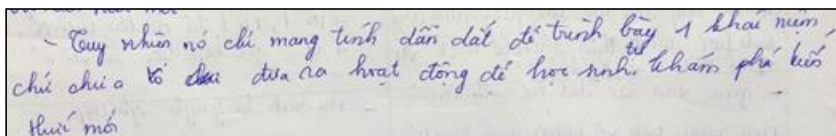 - Tuy nhiên nó chỉ mang tính dẫn dắt để trình bày 1 khái niệm,
chứ chưa đưa ra hoạt động để học sinh tự khám phá kiến
thức mới